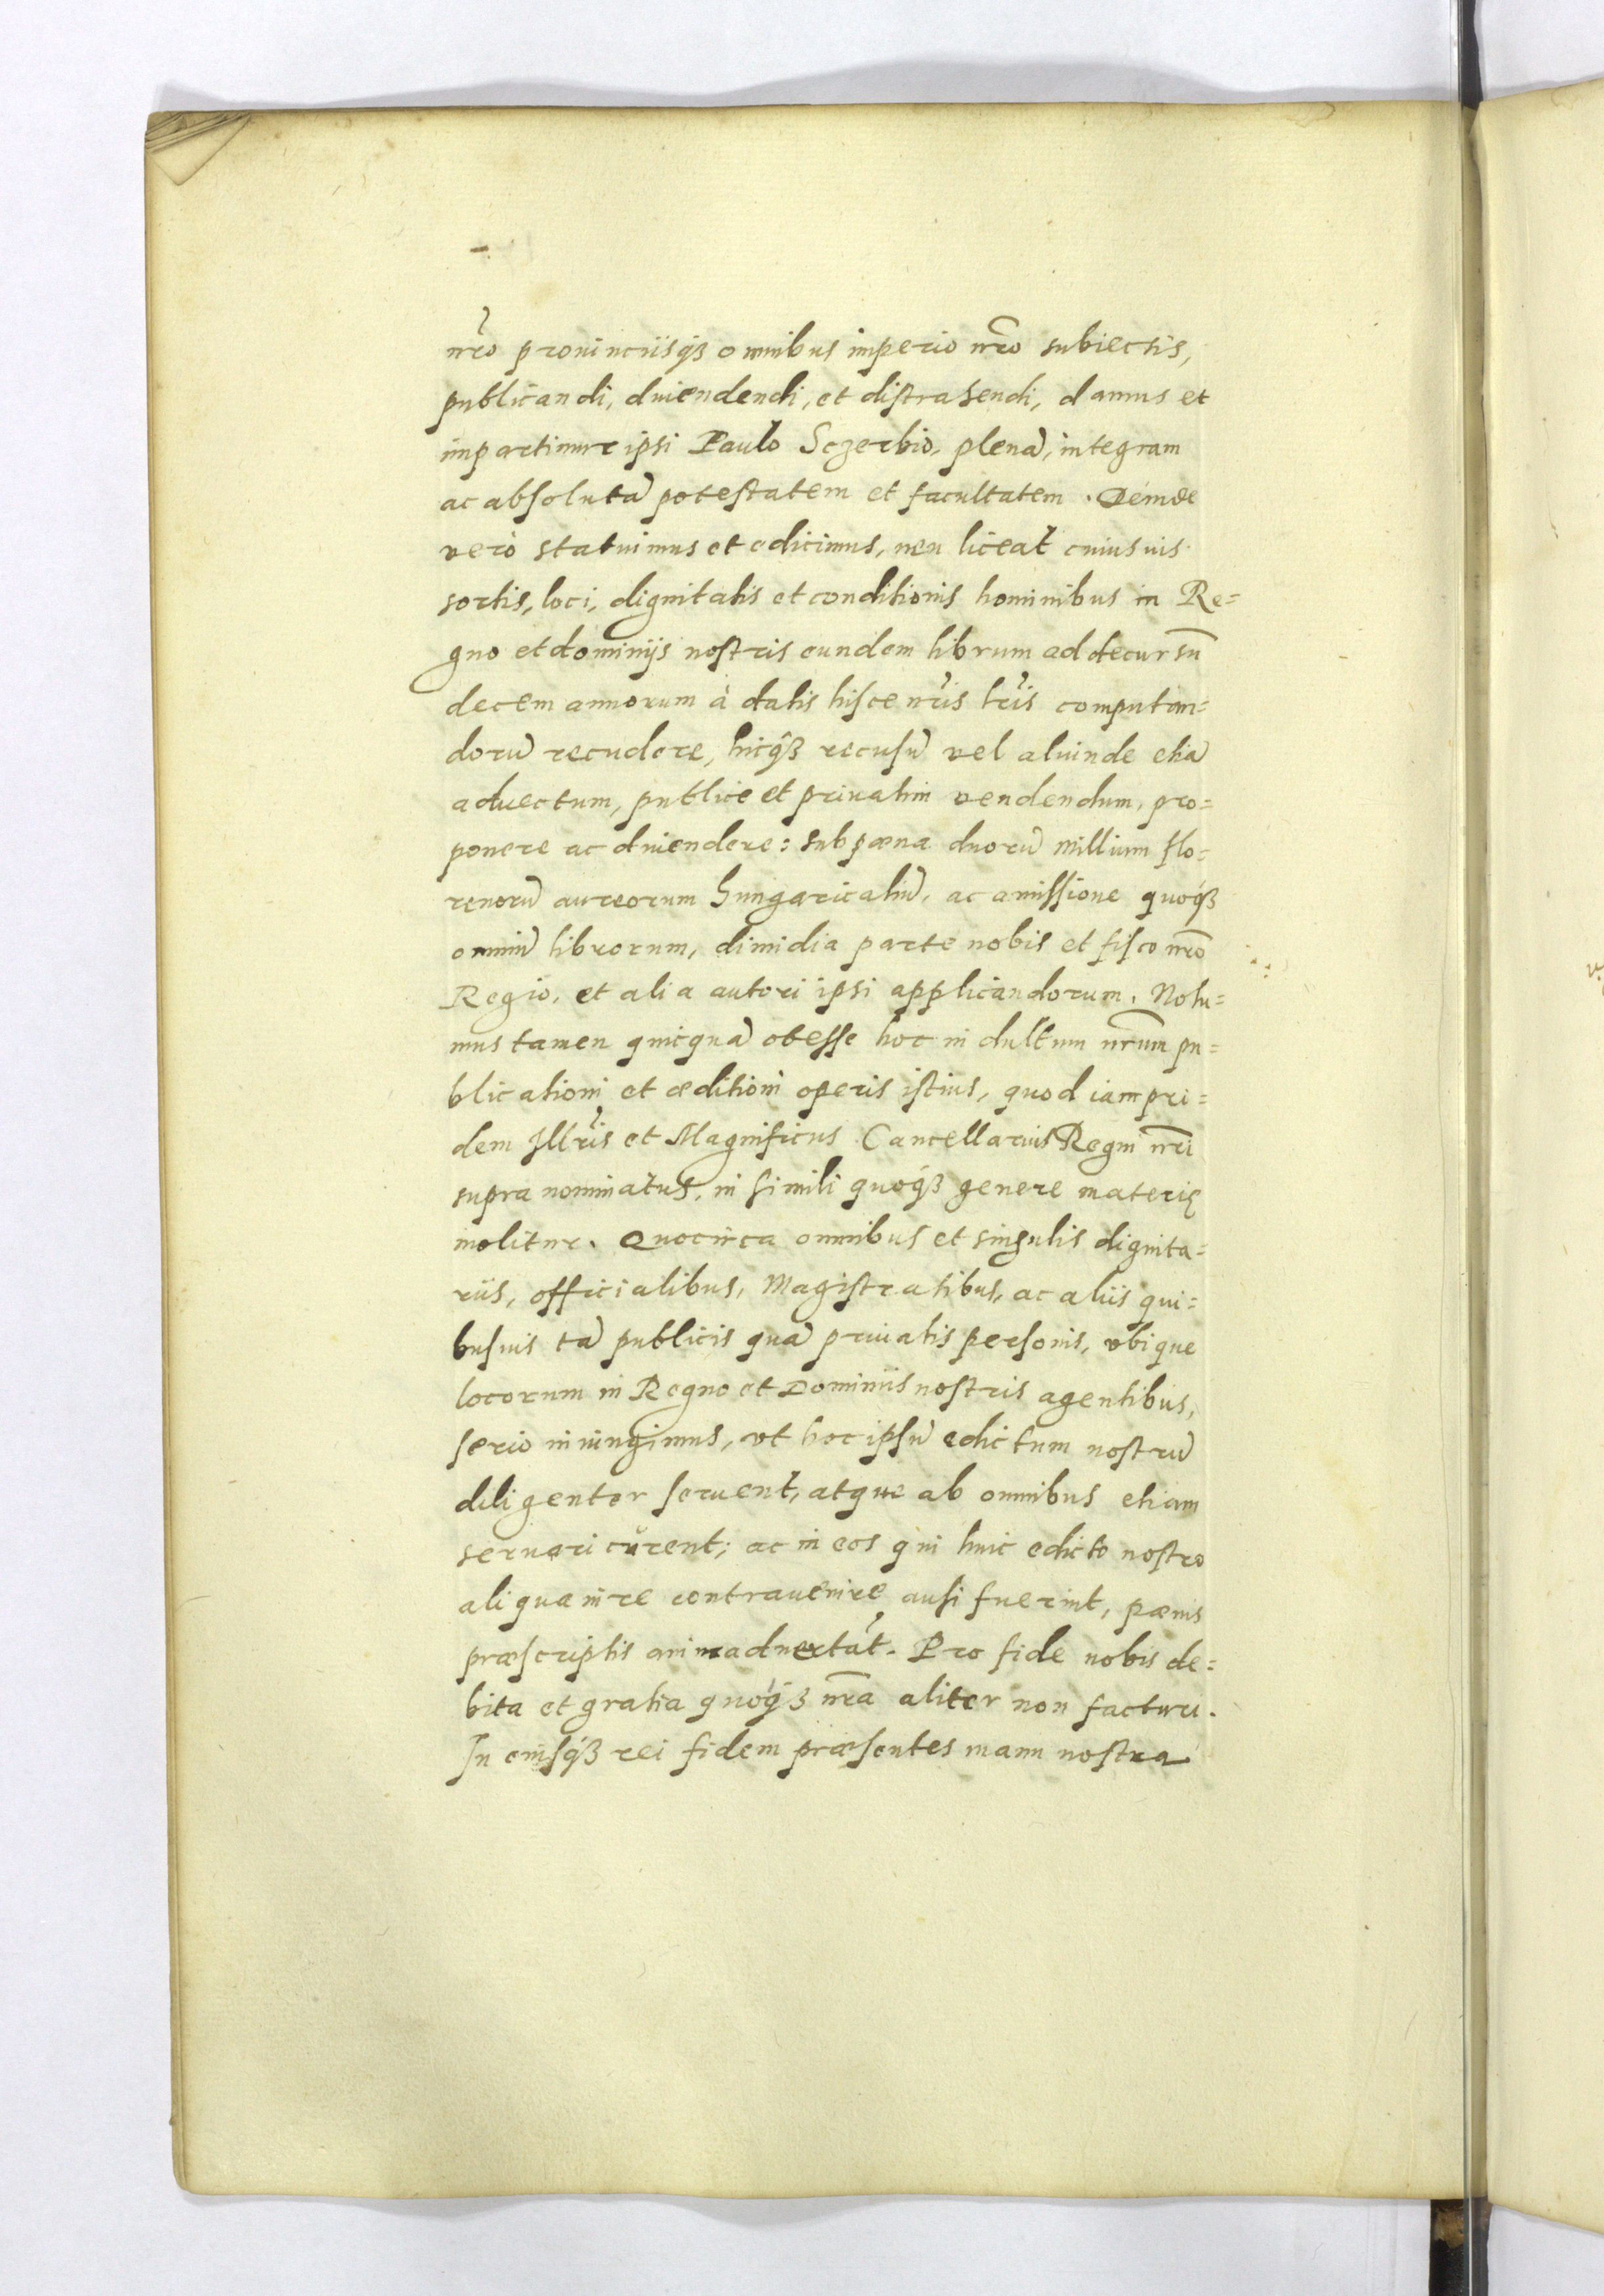 nr̃o prouincijsq́ꝫ omnibus imperio nr̃o subiectis,
publicandi, diuendendi, et distrahendi, damus et
impartimur ipsi Paulo Sczerbio, plenã, integram
ac absolutã potestatem et facultatem. Deinde
verò statuimus et edicimus, neu liceat cuiusuis
sortis, loci, dignitatis et conditionis hominibus in Re=
gno et dominijs nostris eundem librum ad decursũ
decem annorum à datis hisce nr̃is lr̃is computan=
dorũ recudere, hicq́ꝫ recusũ vel aliunde etiã
aduectum, publice et priuatim vendendum, pro=
ponere ac diuendere: sub pæna duorũ millium flo=
renorũ aureorum Hungaricaliũ, ac amissione quoq́ꝫ
omniũ librorum, dimidia parte nobis et fisco nr̃o
Regio, et alia autori ipsi applicandorum. Nolu=
mus tamen quicquã obesse hoc indultum nr̃um pu=
blicationi et æditioni operis istius, quod iampri=
dem Illr̃is et Magnificus Cancellarius Regni nr̃i
supra nominatus, in simili quoq́ꝫ genere materię
molitur. Quocirca omnibus et singulis dignita=
riis, officialibus, Magistratibus, ac aliis qui=
busuis tã publicis quã priuatis personis, vbique
locorum in Regno et Dominiis nostris agentibus,
serio iniungimus, vt hoc ipsũ edictum nostrũ
diligenter seruent, atque ab omnibus etiam
seruari curent; ac in eos qui huic edicto nostro
aliqua in re contrauenire ausi fuerint, pænis
præscriptis animaduertãt. Pro fide nobis de=
bita et gratia quoq́ꝫ nr̃a aliter non facturi.
In cuiusq́ꝫ rei fidem præsentes manu nostra